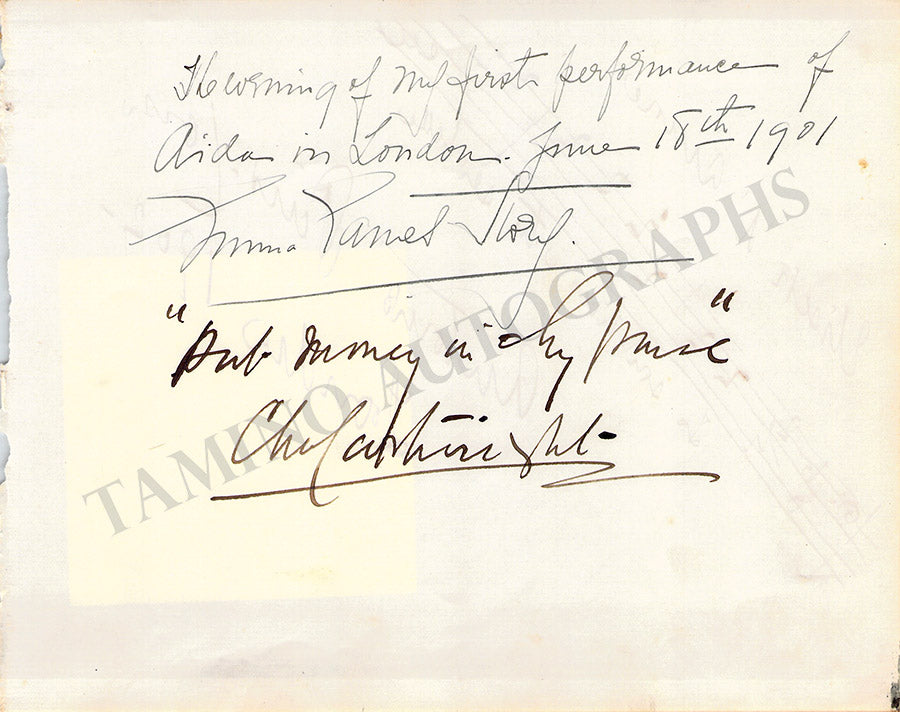 The evening of my first performance of
Aida in London. June 18th 1901
Emma Eames Story.
"Put money in thy purse"
Chas Cartwright
TAMINO AUTOGRAPHS